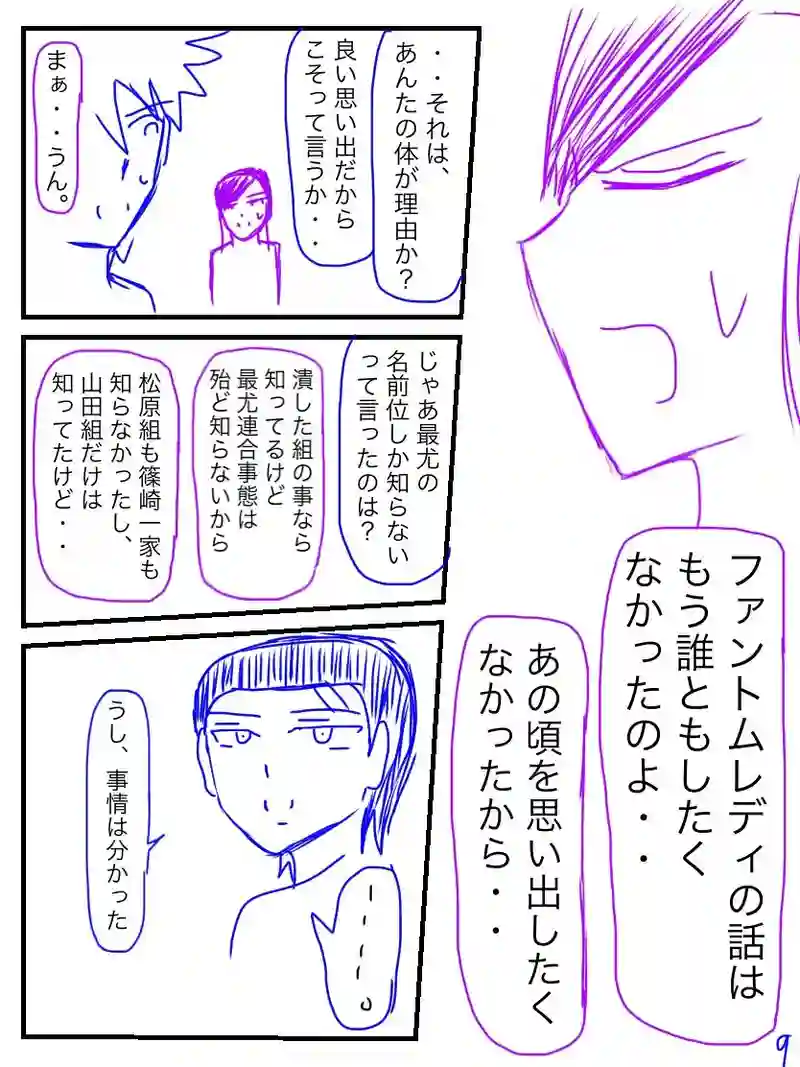 ファントムレディの話は
もう誰ともしたく
なかったのよ・・
あの頃を思い出したく
なかったから・・
・・それは、
あんたの体が理由か？
良い思い出だから
こそって言うか・・
まぁ・・うん。
じゃあ最尤の
名前位しか知らない
って言ったのは？
潰した組の事なら
知ってるけど
最尤連合事態は
殆ど知らないから
松原組も篠崎一家も
知らなかったし、
山田組だけは
知ってたけど・・
ーーーー。
うし、事情は分かった
9